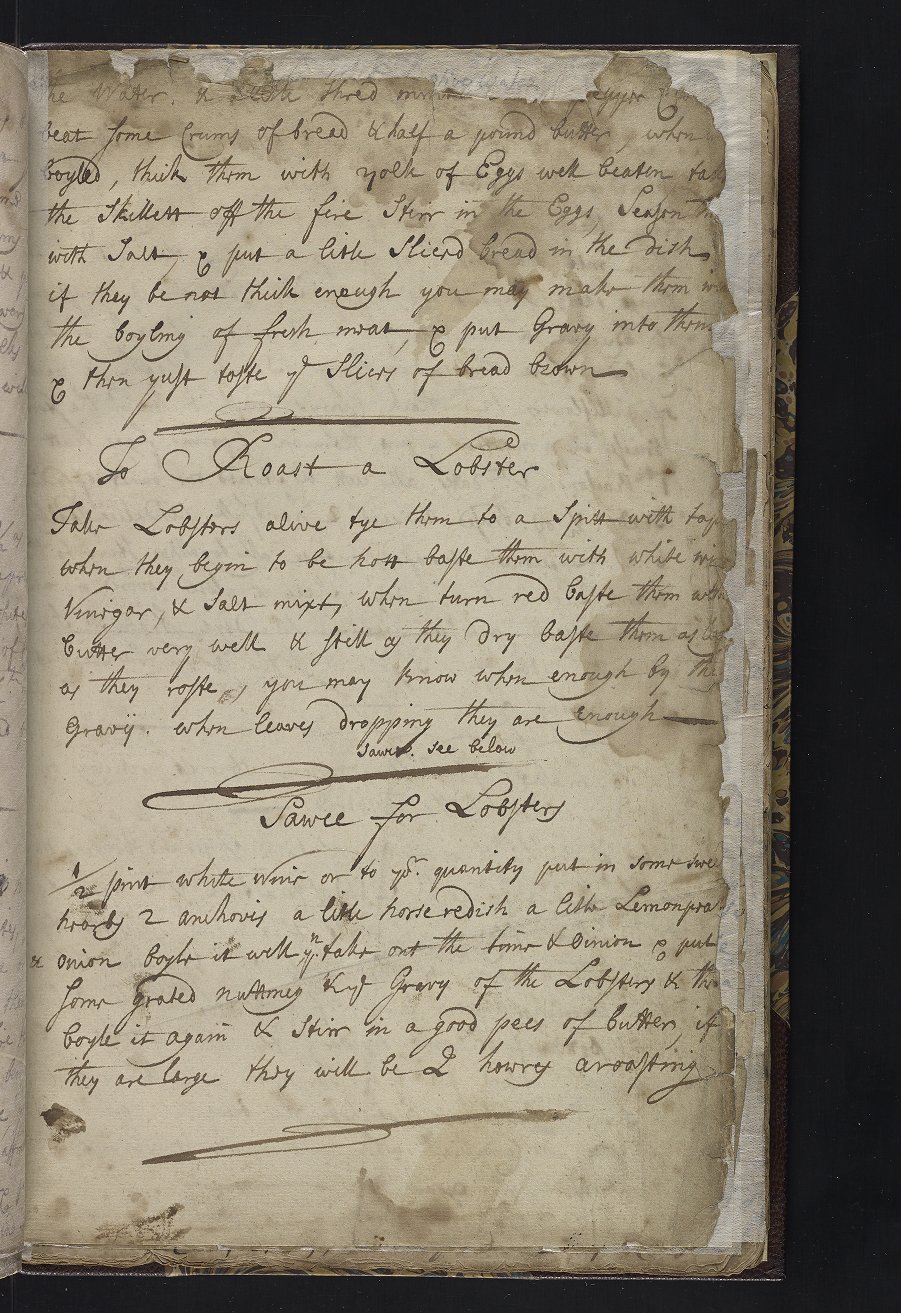 he Water, & little shred
beat some Crums of bread & half a pound butter, when
boyled, thick them with yolk of Eggs well beaten tak
the Skillett off the fire Stirr in the Eggs, Season
with Salt, & put a litle Slic'd bread in the dish
if they be not thick enough you may make them
the boyling of fresh meat, & put Gravy into them
& then just toste ye Slices of bread brown
To Roast a Lobster
Take Lobsters alive tye them to a Spitt with tap
when they begin to be hott baste them with white wi
Vinigar, & Salt mixt, when turn red baste them with
butter very well & still as they dry baste them
as they roste, you may know when enough by the
Gravij. when leaves dropping they are Enough
sawce. see below
Sawce for Lobsters
1/2 pint white wine or to yor. quantity put in some swe
hearbs 2 anchovis a litle horseredish a litle Lemonpea
& onion boyle it well yn. take out the time & Onion & put
some grated nuttmeg & ye Gravy of the Lobsters & the
boyle it again & Stirr in a good pees of butter, if
they are large they will be 2 howres aroasting